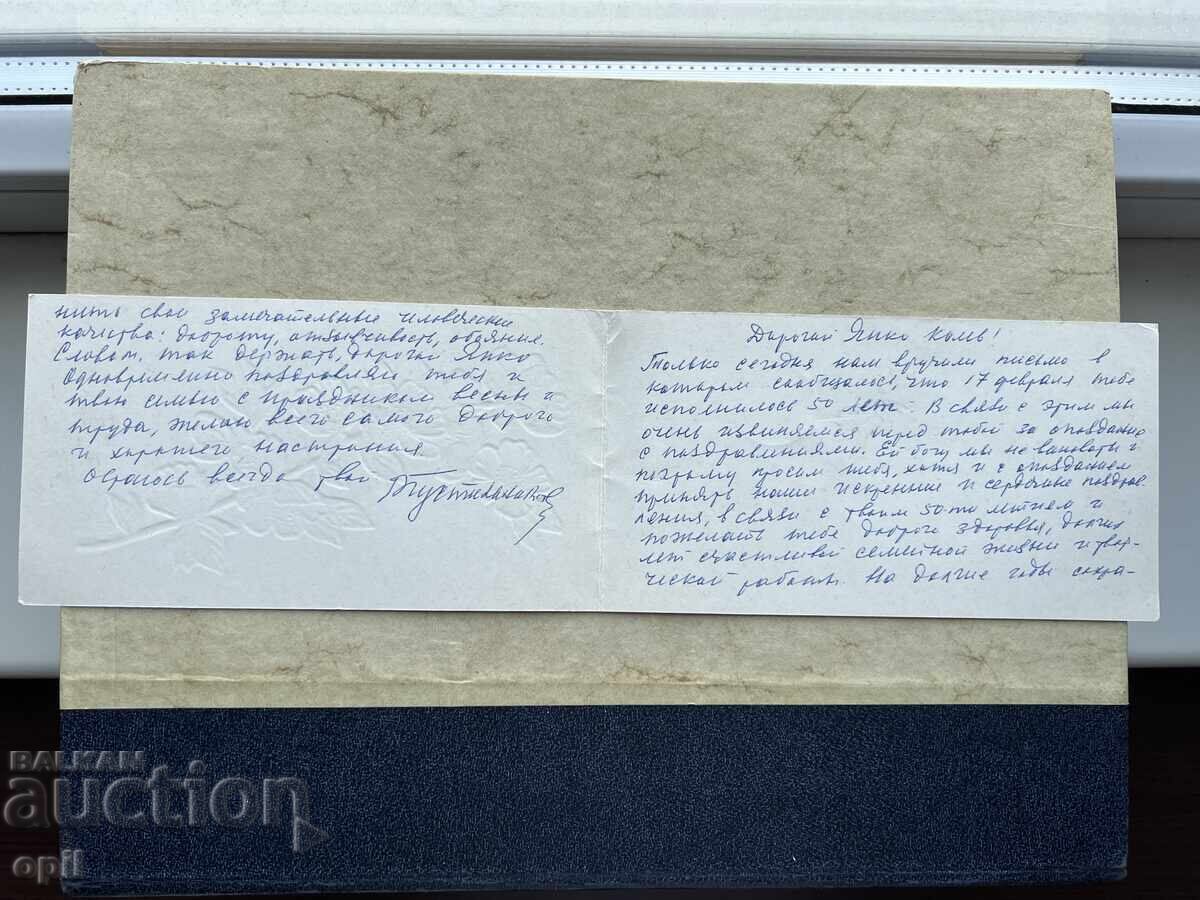 Дорогой Янко Колв!
Только сегодня нам вручили письмо в
котором сообщалось, что 17 февраля тебе
исполнилось 50 лет. В связи с этим мы
очень извиняемся перед тобой за опоздание
с поздравлениями. Ей богу мы не виноваты и
поэтому просим тебя, хотя и с опозданием
принять наши искренние и сердечные поздрав-
ления, в связи с твоим 50-ти летием и
пожелать тебе доброго здоровья, долгих
лет счастливой семейной жизни и твор-
ческой работы. На долгие годы сохра-
нить свои замечательные человеческие
качества: доброту, отзывчивость, обаяние.
Словом, так держать, дорогой Янко
Одновременно поздравляю тебя и
твою семью с праздником весны и
труда, желаю всего самого доброго
и хорошего настроения.
Остаюсь всегда твой
BALKAN
auction
opil